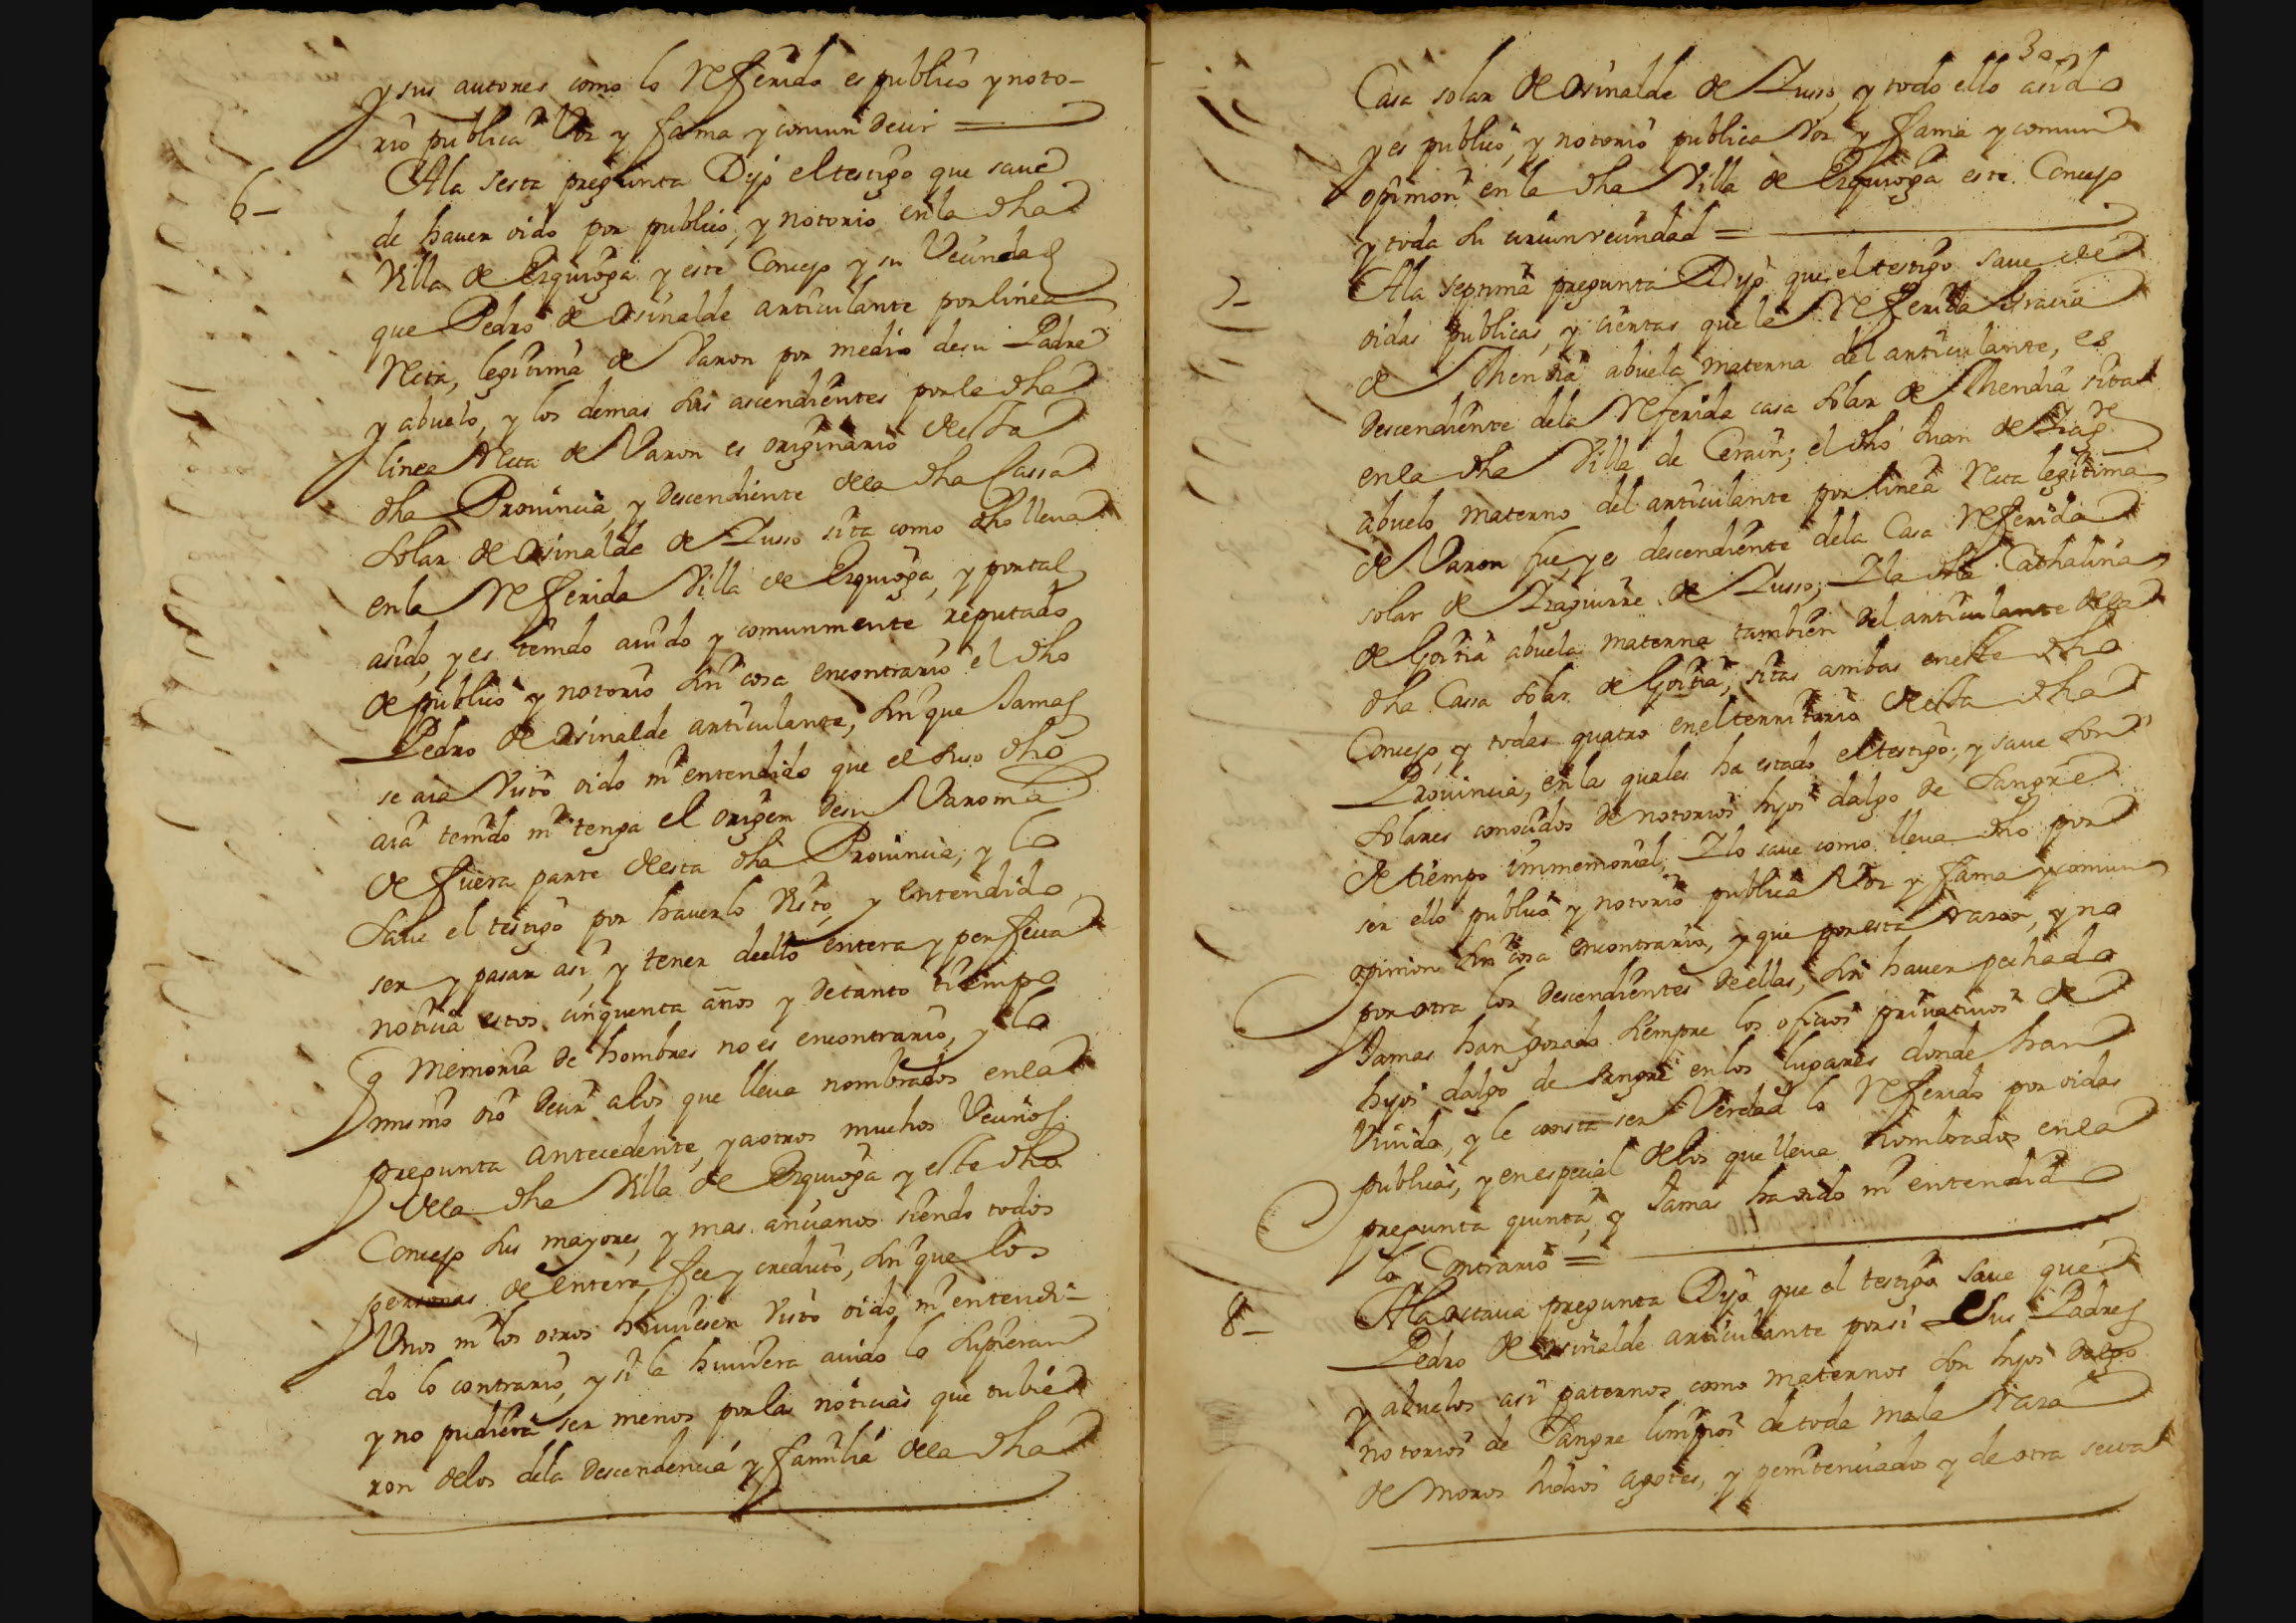 y sus autores como lo Referido es publico y noto-
rio publica Voz y fama y comun decir =
6- Ala sesta pregunta Dijo el testigo que saue
de hauer oido por publico, y notorio en la dha
Villa de Ezquioga y este Concejo y su Vecindad
que Pedro de Osinalde articulante por linea
Recta, legitima de Varon por medio de su Padre
y abuelo, y los demas sus ascendientes por la dha
linea Recta de Varon es originario desta
dha Prouincia, y Descendiente dela dha Cassa
solar de Osinalde de Zusso sita como dho lleua
en la Referida Villa de Ezquioga, y por tal
asido, y es tenido auido y comunmente reputado
de publico y notorio sin cosa encontrario el dho
Pedro de Osinalde articulante, sin que Jamas
se aia Visto oido ni entendido que el suso dho
aia tenido ni tenga el origen de su Varonia
de fuera parte desta dha Prouincia, y lo
saue el testigo por hauerlo Visto, y entendido
ser y pasar asi, y tener dello entera y perfecta
noticia estos cinquenta años y de tanto tiempo
q memoria de hombres no es encontrario, y lo
mismo oio decir alos que lleua nombrados en la
pregunta antecedente, y a otros muchos Vecinos
dela dha Villa de Ezquioga y este dho
Concejo sus mayores, y mas ancianos siendo todos
personas de entera fee y credito, sin que los
Unos ni los otros huuiesen Visto oido ni entendi-
do lo contrario, y si le huuiera auido lo supieran
y no pudiera ser menos por las noticias que tubie
ron delos dela Descendencia y familia dela dha
30
Casa solar de Osinalde de Zusso, y todo ello asido
y es publico, y notorio publica Voz y fama y comun
opinion en la dha Villa de Ezquioga este Concejo
y toda su circunvecindad =
7- Ala septima pregunta Dijo que el testigo saue de
oidas publicas, y ciertas que la Referida Gracia
de Mendia abuela materna del articulante, es
Descendiente dela Referida casa solar de Mendia sita
en la dha Villa de Cerain; el dho Juan de
abuelo materno del articulante por linea Recta legitima
de Varon fue, y es descendiente dela Casa Referida
solar de Yzaguirre de Zusso; Y la dha Cathalina
de Goitia abuela materna tambien del articulante dela
dha Cassa solar de Goitia, sitas ambas en este dho
Concejo, y todas quatro en el territorio desta dha
Prouincia, en las quales ha estado el testigo, y saue son
solares conocidos de notorios hijos dalgo de sangre
de tiempo immemorial, Y lo saue como lleua dho por
ser ello publico y notorio publica Voz y fama y comun
opinion sin cosa encontrario, y que por esta razon, y no
por otra los Descendientes de ellas, sin hauer pechado
Jamas han gozado siempre los oficios priuatiuos de
hijos dalgo de sangre en los lugares donde han
Viuido, y le consta ser Verdad lo Referido por oidas
publicas, y en especial delos que lleua nombrados en la
pregunta quinta, y Jamas ha oido ni entendido
lo Contrario =
8- Ala octaua pregunta Dijo que el testigo saue que
Pedro de Osinalde articulante por si sus Padres
y abuelos asi paternos como maternos son hijos dalgo
notorios de Sangre limpios de toda mala raza
de moros Judios agotes, y penitenciados y de otra secta